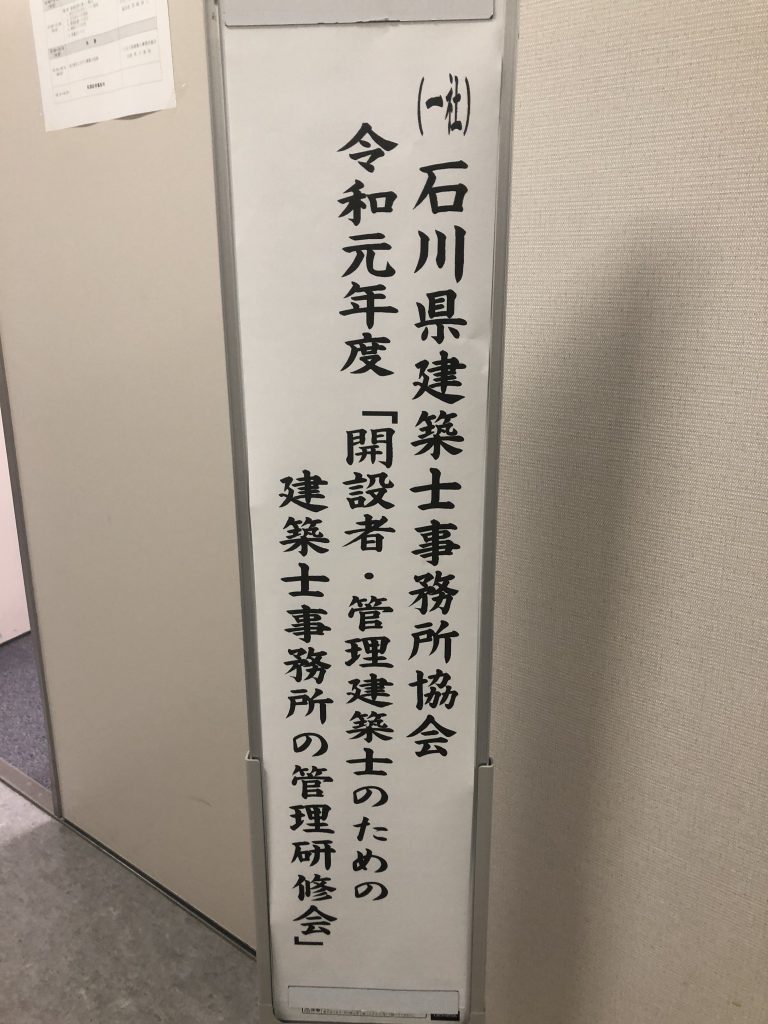 (一社)石川県建築士事務所協会
令和元年度「開設者・管理建築士のための
建築士事務所の管理研修会」